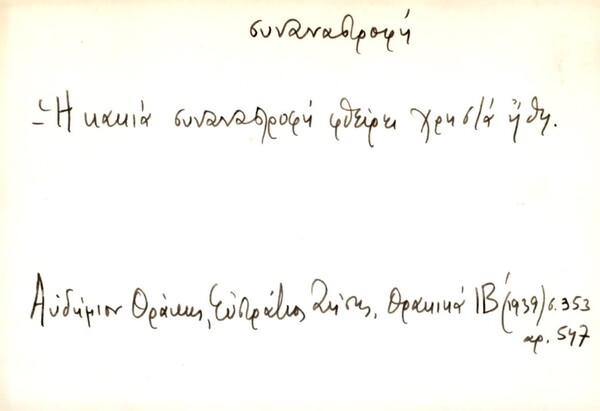 συναναστροφή
– Ἡ κακιά συναναστροφή φθείρει χρηστά ἤθη.
Αὐδήμιον Θράκης, Εὐστράτιος Ζήσης, Θρακικά ΙΒ΄ (1939) σ. 353
αρ. 547